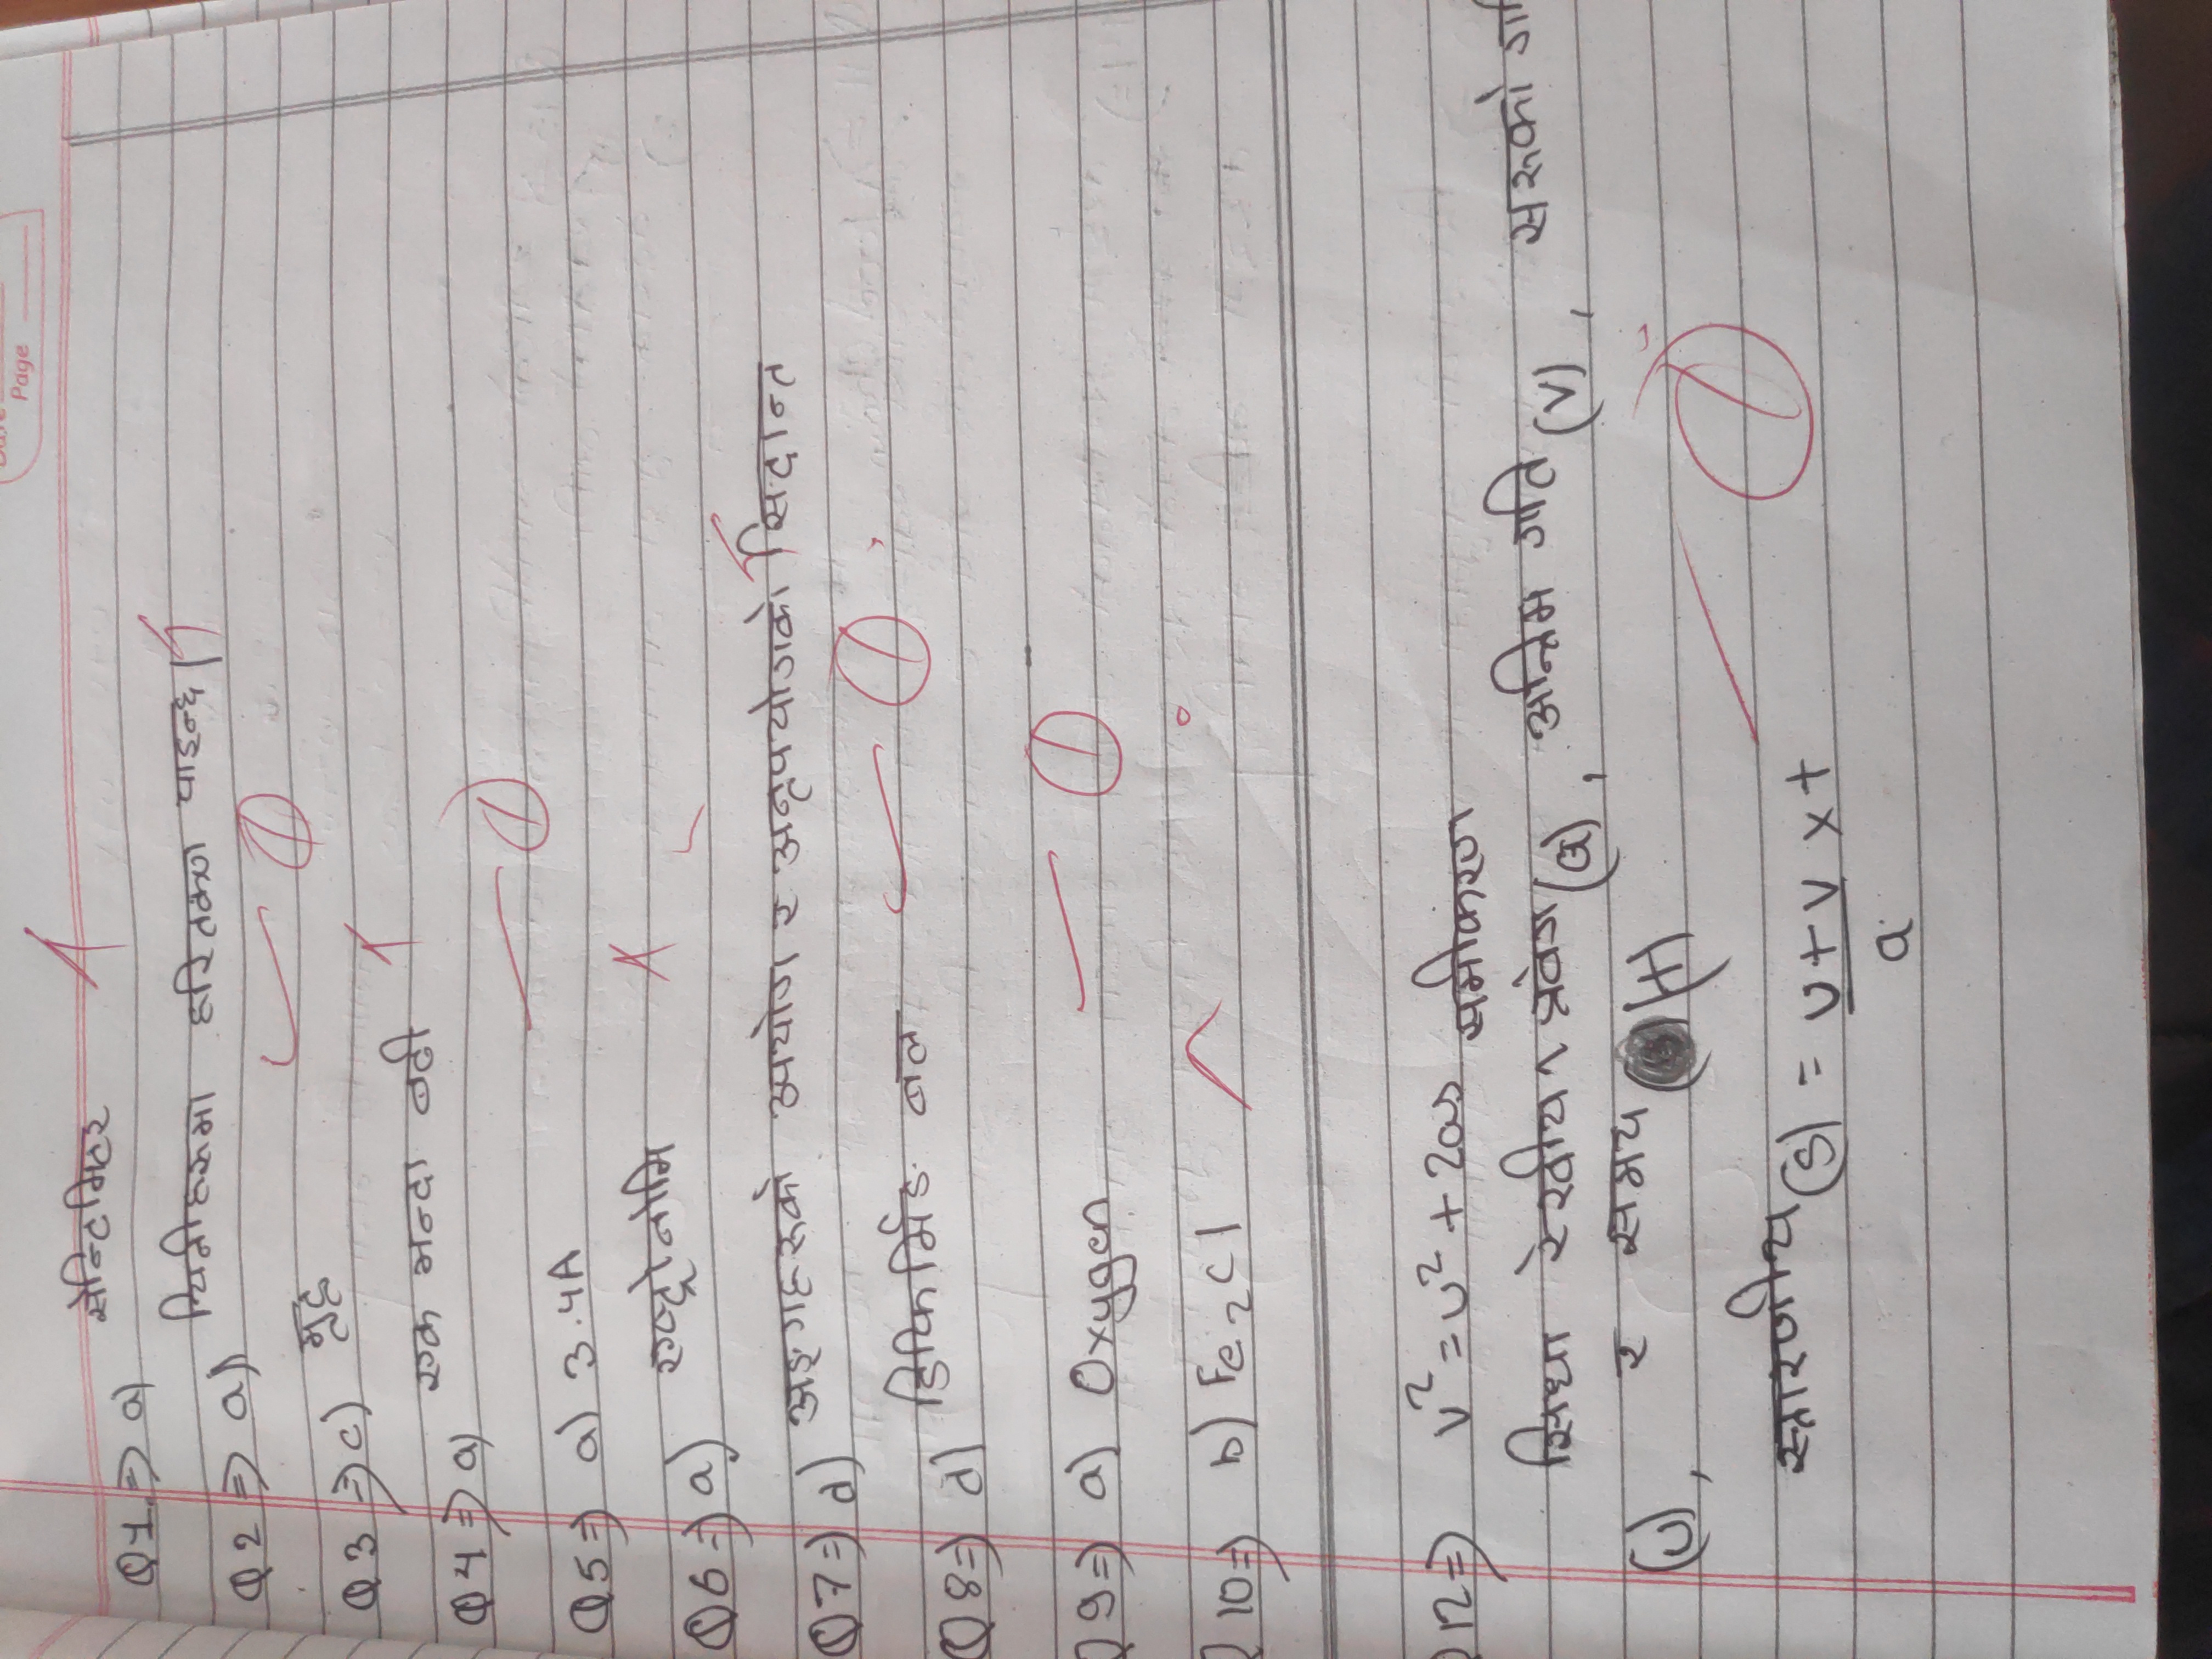 Page
Q1.=> a) सेन्टिमिटर
Q2 => a) यिनीहरूमा हरितकण पाइन्छ।
Q3 => c) मृदु
Q4 => a) एक भन्दा बढी
Q5 => a) 3.4A
Q6 => a) एष्ट्रोनोमि
Q7 => d) अङ्गहरूको उपयोग र अनुपयोगको सिद्दान्त
Q8 => d) डिफर्मिङ बल
Q9 => a) Oxygen
10 => b) Fe₂Cl
12 => v² = u² + 2as समीकरण
सिधा रेखीय प्रवेग (a), अन्तिम गति (v), सरूको
(u), र समय (t)
(s) = u+v x t
a